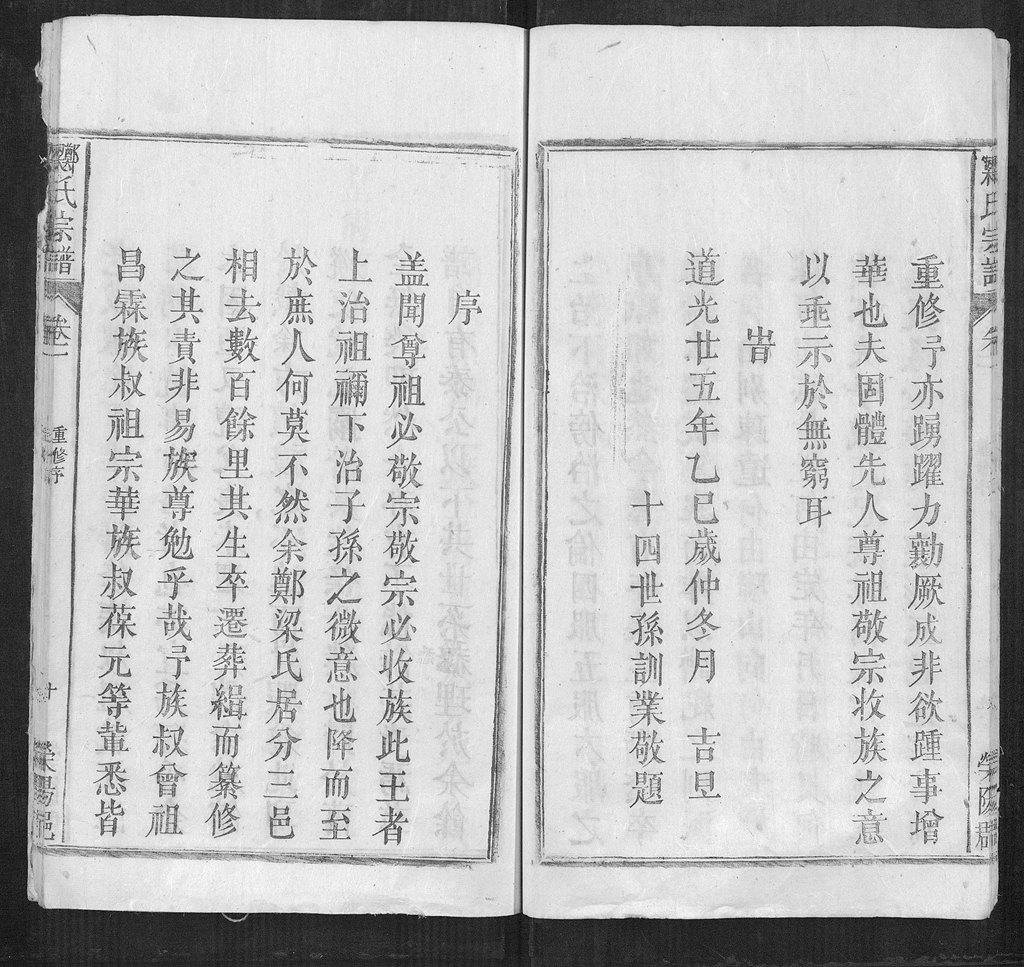 重修予亦踴躍力勷厥成非欲踵事增
華也夫固體先人尊祖敬宗收族之意
以垂示於無窮耳
旹
道光廿五年乙巳歲仲冬月　吉旦
十四世孫訓業敬題
序
盖聞尊祖必敬宗敬宗必收族此王者
上治祖禰下治子孫之微意也降而至
於庶人何莫不然余鄭梁氏居分三邑
相去數百餘里其生卒遷葬緝而纂修
之其責非易族尊勉乎哉予族叔曾祖
昌霖族叔祖宗華族叔葆元等輩悉皆
鄭氏宗譜
卷一
重修序
十
滎陽郡